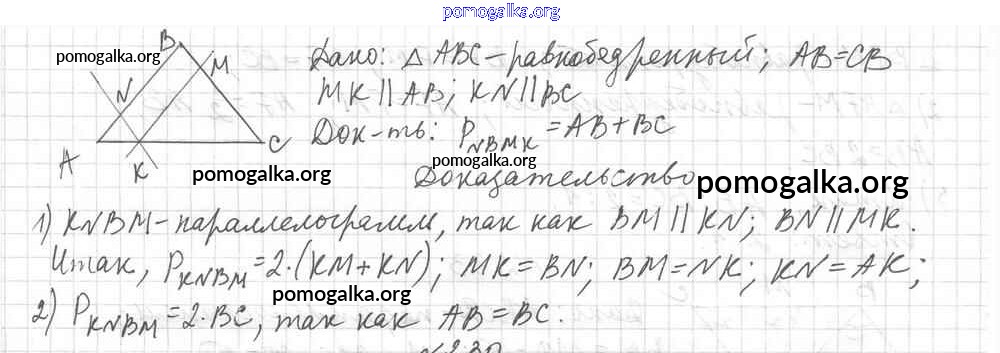 pomogalka.org
B
pomogalka.org
M
N
A
K
C
Дано: △ ABC - равнобедренный; AB=CB
MK || AB; KN || BC
pomogalka.org
Док-ть: P_NBMK = AB+BC
pomogalka.org
Доказательство
pomogalka.org
1) KNBM - параллелограмм, так как BM || KN; BN || MK.
Итак, P_KNBM = 2·(KM+KN); MK=BN; BM=NK; KN=AK;
pomogalka.org
2) P_KNBM = 2·BC, так как AB=BC.